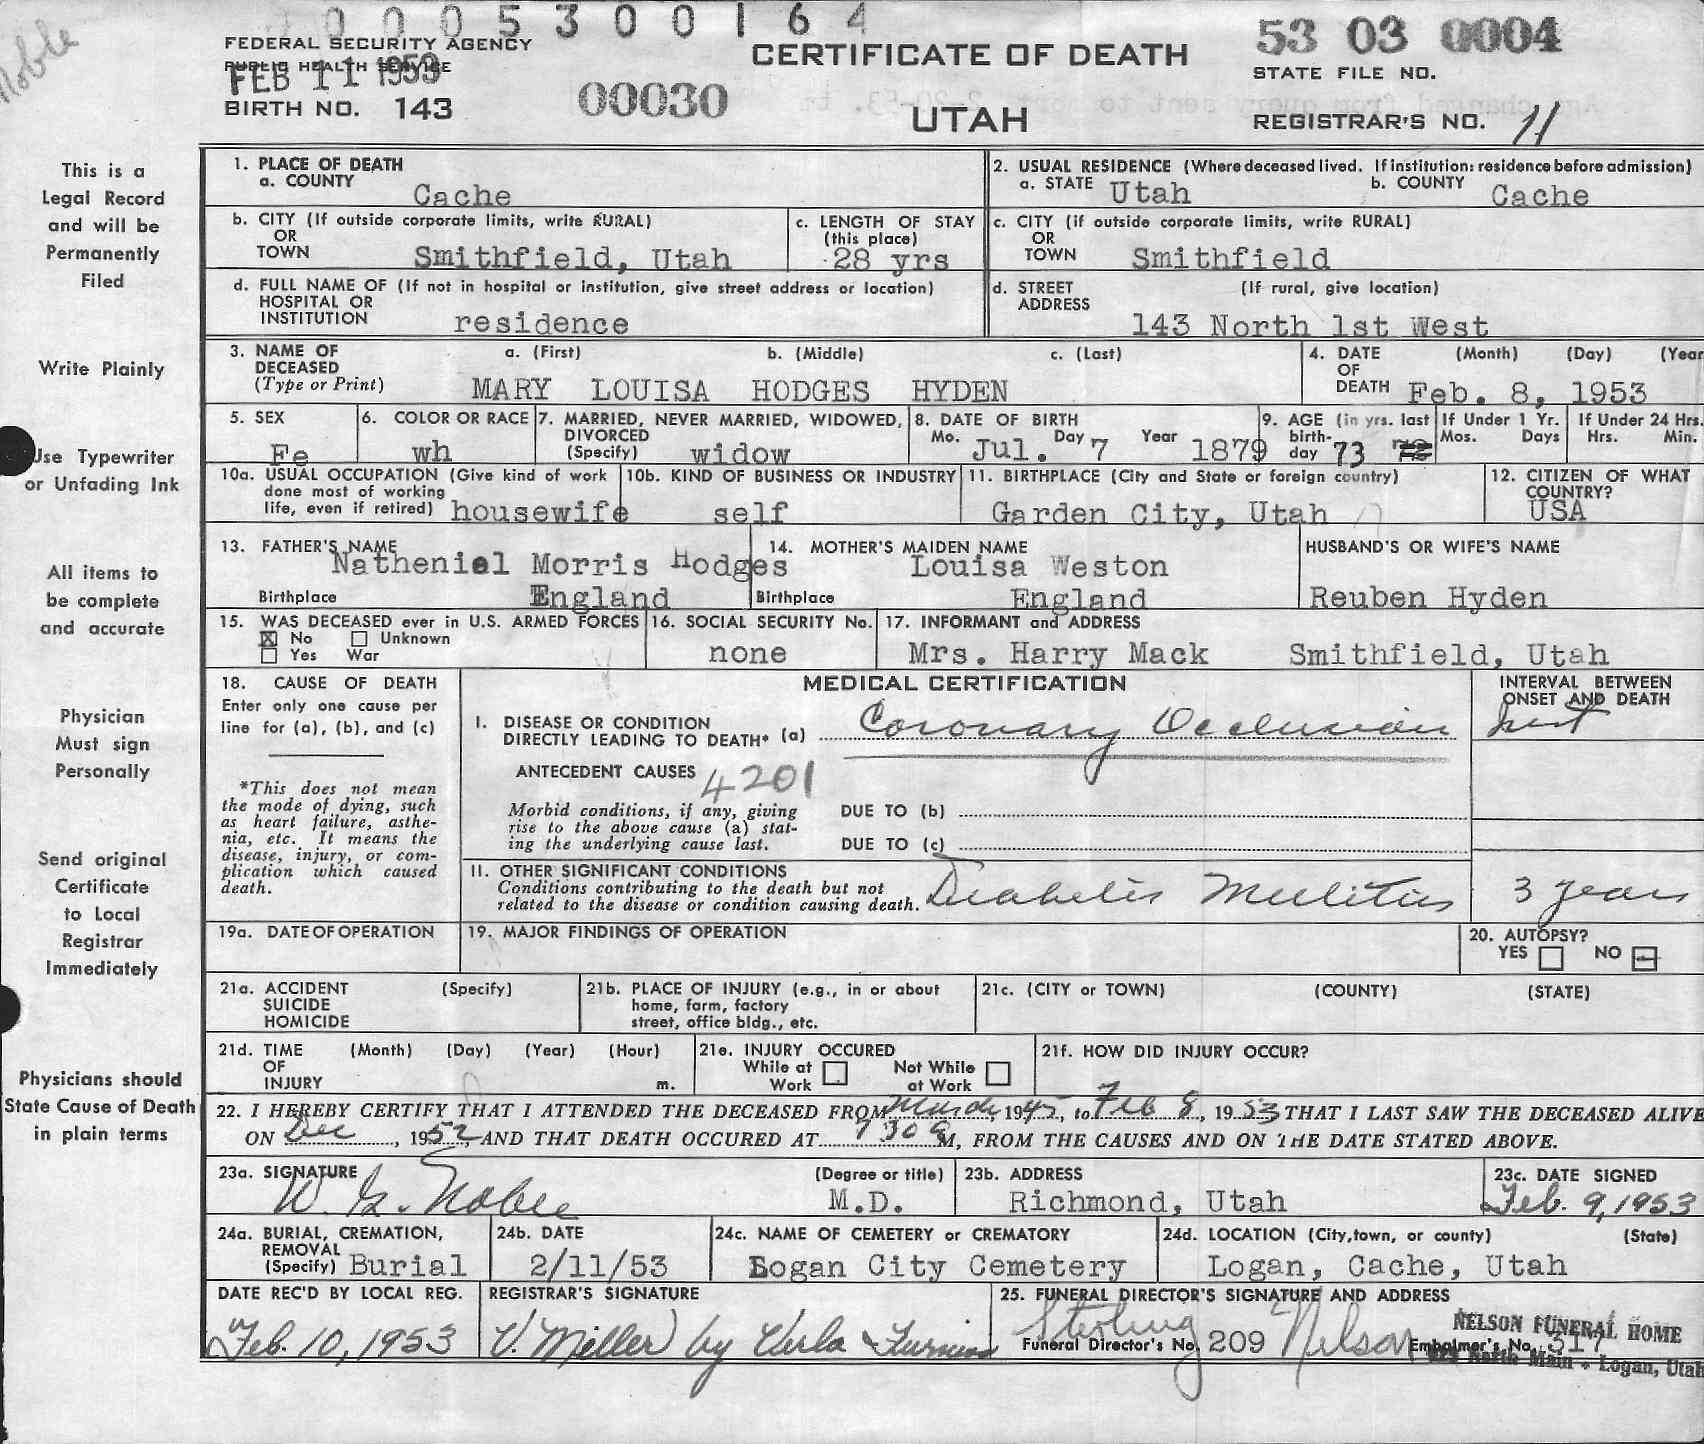 Noble
0005300164
FEDERAL SECURITY AGENCY
PUBLIC HEALTH SERVICE
FEB 11 1953
BIRTH NO. 143
00030
CERTIFICATE OF DEATH
UTAH
53 03 0004
STATE FILE NO.
REGISTRAR'S NO. 11
This is a
Legal Record
and will be
Permanently
Filed
Write Plainly
Use Typewriter
or Unfading Ink
All items to
be complete
and accurate
Physician
Must sign
Personally
Send original
Certificate
to Local
Registrar
Immediately
Physicians should
State Cause of Death
in plain terms
1. PLACE OF DEATH
a. COUNTY Cache
2. USUAL RESIDENCE (Where deceased lived. If institution: residence before admission)
a. STATE Utah b. COUNTY Cache
b. CITY (If outside corporate limits, write RURAL)
OR
TOWN Smithfield, Utah
c. LENGTH OF STAY
(this place)
28 yrs
c. CITY (if outside corporate limits, write RURAL)
OR
TOWN Smithfield
d. FULL NAME OF (If not in hospital or institution, give street address or location)
HOSPITAL OR
INSTITUTION residence
d. STREET (If rural, give location)
ADDRESS
143 North 1st West
3. NAME OF a. (First) b. (Middle) c. (Last)
DECEASED
(Type or Print) MARY LOUISA HODGES HYDEN
4. DATE (Month) (Day) (Year
OF
DEATH Feb. 8, 1953
5. SEX
Fe
6. COLOR OR RACE
wh
7. MARRIED, NEVER MARRIED, WIDOWED,
DIVORCED
(Specify) widow
8. DATE OF BIRTH
Mo. Day Year
Jul. 7 1879
9. AGE (in yrs. last
birth-
day 73
If Under 1 Yr.
Mos. Days
If Under 24 Hrs.
Hrs. Min.
10a. USUAL OCCUPATION (Give kind of work
done most of working
life, even if retired) housewife
10b. KIND OF BUSINESS OR INDUSTRY
self
11. BIRTHPLACE (City and State or foreign country)
Garden City, Utah
12. CITIZEN OF WHAT
COUNTRY?
USA
13. FATHER'S NAME
Natheniel Morris Hodges
Birthplace England
14. MOTHER'S MAIDEN NAME
Louisa Weston
Birthplace England
HUSBAND'S OR WIFE'S NAME
Reuben Hyden
15. WAS DECEASED ever in U.S. ARMED FORCES
X No Unknown
Yes War
16. SOCIAL SECURITY No.
none
17. INFORMANT and ADDRESS
Mrs. Harry Mack Smithfield, Utah
18. CAUSE OF DEATH
Enter only one cause per
line for (a), (b), and (c)
*This does not mean
the mode of dying, such
as heart failure, asthe-
nia, etc. It means the
disease, injury, or com-
plication which caused
death.
MEDICAL CERTIFICATION
INTERVAL BETWEEN
ONSET AND DEATH
I. DISEASE OR CONDITION
DIRECTLY LEADING TO DEATH* (a) Coronary Occlusion
ANTECEDENT CAUSES 4201
Morbid conditions, if any, giving
rise to the above cause (a) stat-
ing the underlying cause last.
DUE TO (b)
DUE TO (c)
II. OTHER SIGNIFICANT CONDITIONS
Conditions contributing to the death but not
related to the disease or condition causing death. Diabetis Mellitus 3 years
19a. DATE OF OPERATION
19. MAJOR FINDINGS OF OPERATION
20. AUTOPSY?
YES NO
21a. ACCIDENT (Specify)
SUICIDE
HOMICIDE
21b. PLACE OF INJURY (e.g., in or about
home, farm, factory
street, office bldg., etc.
21c. (CITY or TOWN) (COUNTY) (STATE)
21d. TIME (Month) (Day) (Year) (Hour)
OF
INJURY m.
21e. INJURY OCCURED
While at Work
Not While at Work
21f. HOW DID INJURY OCCUR?
22. I HEREBY CERTIFY THAT I ATTENDED THE DECEASED FROM March, 1945, to Feb 8, 1953 THAT I LAST SAW THE DECEASED ALIVE
ON Dec, 1952, AND THAT DEATH OCCURED AT 730 a M, FROM THE CAUSES AND ON THE DATE STATED ABOVE.
23a. SIGNATURE (Degree or title)
W. G. Noble M.D.
23b. ADDRESS
Richmond, Utah
23c. DATE SIGNED
Feb. 9, 1953
24a. BURIAL, CREMATION,
REMOVAL
(Specify) Burial
24b. DATE
2/11/53
24c. NAME OF CEMETERY or CREMATORY
Logan City Cemetery
24d. LOCATION (City, town, or county) (State)
Logan, Cache, Utah
DATE REC'D BY LOCAL REG.
Feb. 10, 1953
REGISTRAR'S SIGNATURE
V. Miller by Verla
25. FUNERAL DIRECTOR'S SIGNATURE AND ADDRESS
Sterling Nelson
NELSON FUNERAL HOME
Funeral Director's No. 209 Embalmer's No. 317
North Main - Logan, Utah